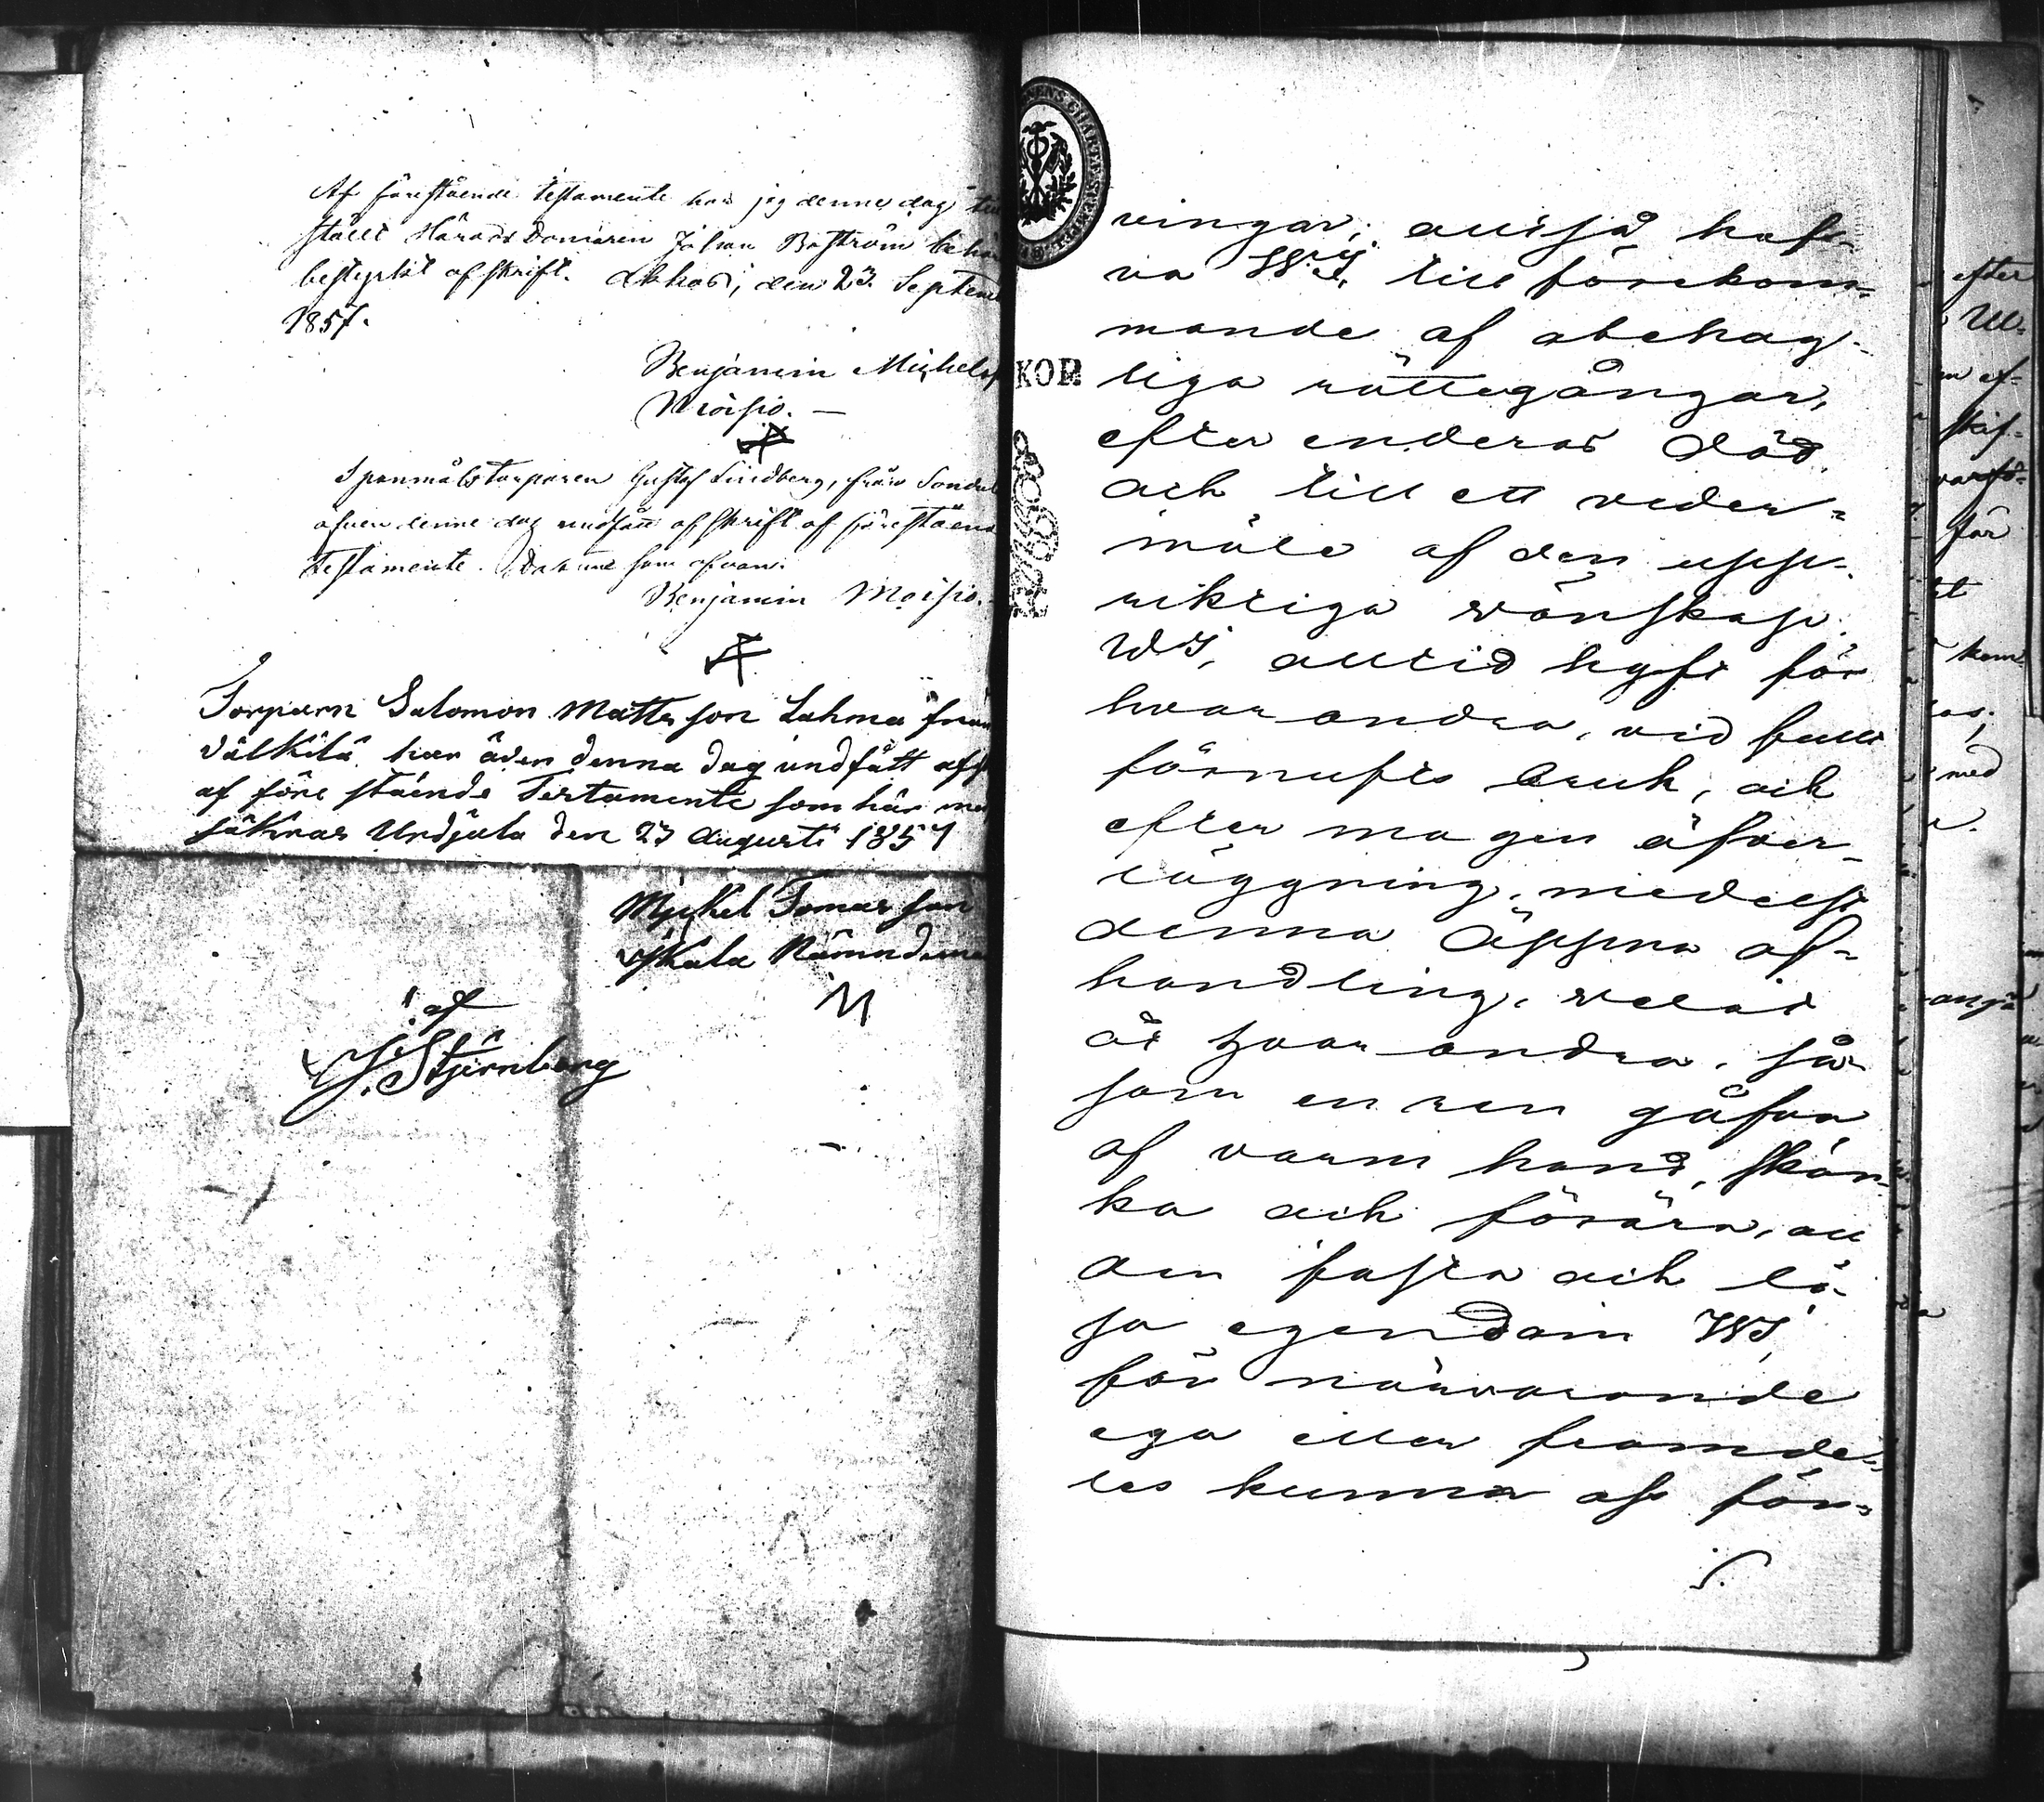 Af förestående testamente har jag denne dag till
ställt Härads Domaren Johan Boström behör
bestyrkt afskrift. Akkas, den 23 Septem
1857.
Benjamin Michels
Moisio. —
Spanmålstorparen Gustaf Lindberg, från
äfven denne dag undfått afskrift af förestående
testamente. Datum som ofvan.
Benjamin Moisio.
Torparn Salomon Mattsson Lahma från
Välkilä har även denna dag undfått afs
af före stående Testamente som här me
säkras Urdjala den 23 Augusti 1857
Myckel Tomasson
Skala Nämndeman
af
J. Stjernberg
KOP.
ningar; alltså haf-
va Wij, till förekom-
mande af obehag-
liga rättegångar,
efter enderas död
och till ett veder-
mäle af den upp-
riktiga vänskap
Wi, alltid hyst för
hvarandra, vid fullt
förnufts bruk, och
efter mogen öfver-
läggning, medelst
denna öppna af-
handling, velat
åt hvarandra, så-
som en ren gåfva
af varm hand, skän-
ka och förära, all
den fasta och lö-
sa egendom Wi,
för närvarande
ega eller framde-
les kunna oss för-
efter
för
kom-
med